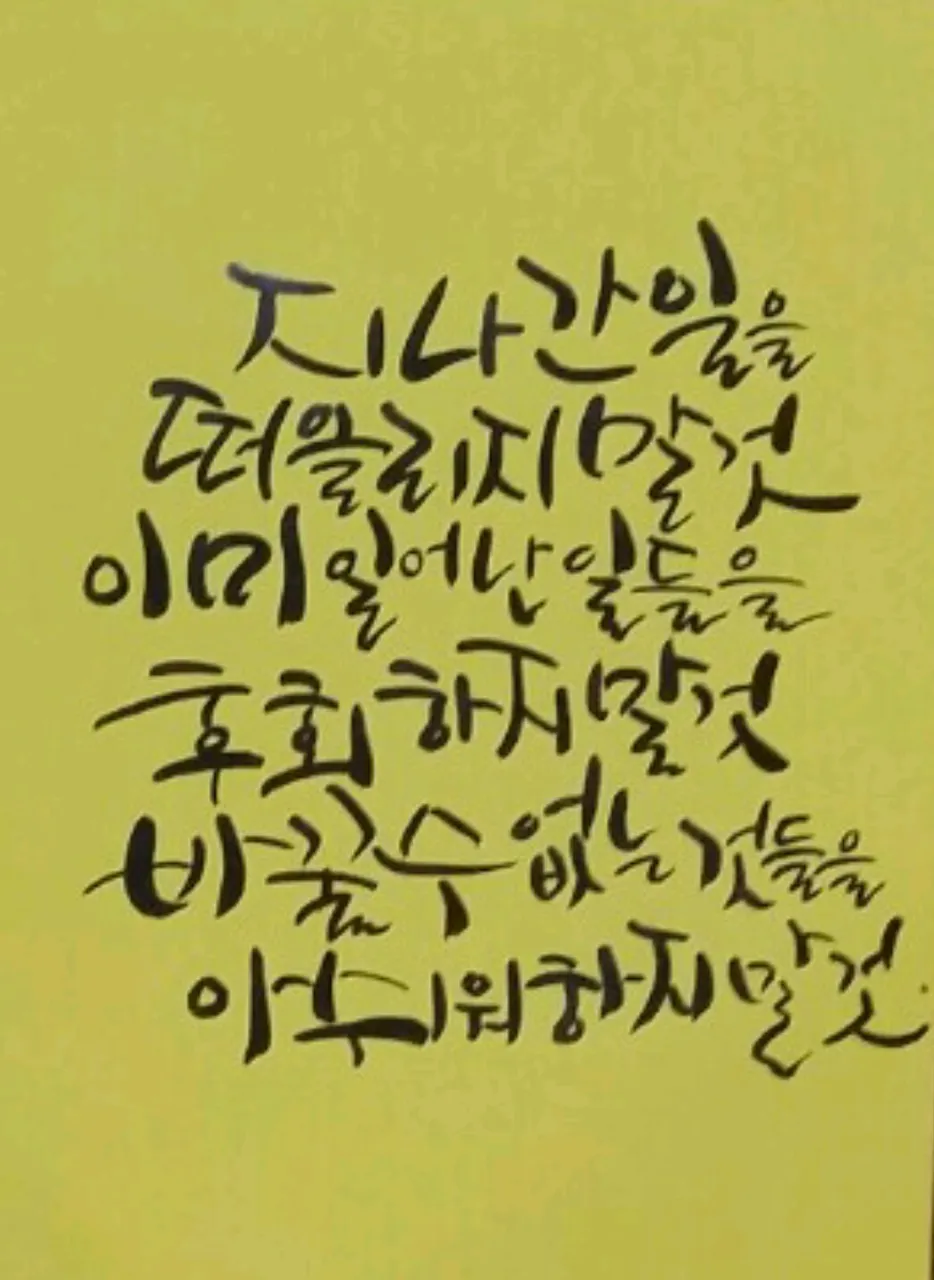 지나간 일을
떠올리지 말것
이미 일어난 일들을
후회하지 말것
바꿀 수 없는 것들을
아쉬워하지 말것.